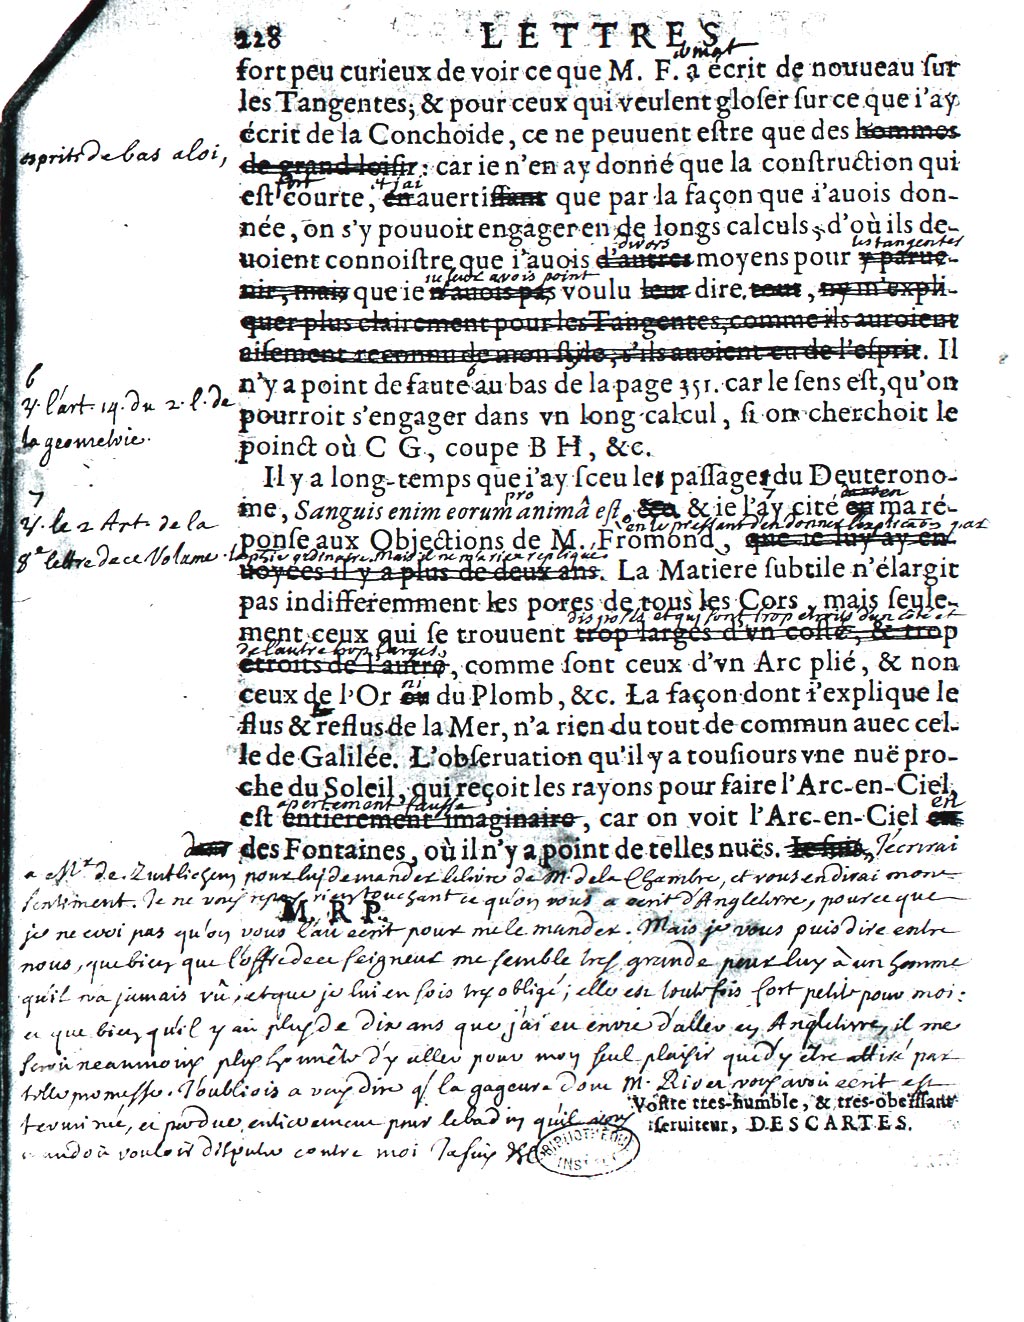 228 LETTRES
fort peu curieux de voir ce que M. F. a écrit de nouueau sur
les Tangentes; & pour ceux qui veulent gloser sur ce que i'ay
écrit de la Conchoide, ce ne peuuent estre que des hommes
esprits de bas aloi,
de grand loisir: car ie n'en ay donné que la construction qui
fort & j'ai
est courte, en auertissant que par la façon que i'auois don-
née, on s'y pouuoit engager en de longs calculs, d'où ils de-
divers les tangentes
uoient connoistre que i'auois d'autres moyens pour y parue-
nir, mais que ie n'auois pas voulu leur dire tout, ny m'expli-
quer plus clairement pour les Tangentes, comme ils auroient
aisement reconnu de mon stile, s'ils auoient eu de l'esprit. Il
6
n'y a point de faute au bas de la page 351. car le sens est, qu'on
v. l'art. 14. du 2. l. de
pourroit s'engager dans vn long calcul, si on cherchoit le
la geometrie.
poinct où C G, coupe B H, &c.
Il y a long-temps que i'ay sceu les passages du Deuterono-
7
pro
me, Sanguis enim eorum animâ est, &ca & ie l'ay cité en ma ré-
v. le 2 Art. de la
ponse aux Objections de M. Fromond, que ie luy ay en-
8e lettre de ce Volume.
uoyées il y a plus de deux ans. La Matiere subtile n'élargit
pas indifferemment les pores de tous les Cors, mais seule-
disposés et qui sont trop etroits d'un côté et
ment ceux qui se trouuent trop larges d'vn costé, & trop
de l'autre trop larges,
étroits de l'autre, comme sont ceux d'vn Arc plié, & non
ni
ceux de l'Or ou du Plomb, &c. La façon dont i'explique le
flus & reflus de la Mer, n'a rien du tout de commun auec cel-
le de Galilée. L'obseruation qu'il y a tousiours vne nuë pro-
che du Soleil, qui reçoit les rayons pour faire l'Arc-en-Ciel,
apertement fausse en
est entierement imaginaire, car on voit l'Arc-en-Ciel en
des Fontaines, où il n'y a point de telles nuës. Ie suis, J'écrirai
a Mr. de Zuitlichem pour lui demander le livre de M. de la Chambre, et vous en dirai mon
sentiment. Je ne vous repons rien touchant ce qu'on vous a ecrit d'Angleterre, pource que
M. R P.
je ne croi pas qu'on vous l'ait ecrit pour me le mander. Mais je vous puis dire entre
nous, que bien que l'offre de ce seigneur me semble tres grande pour lui à un homme
qu'il n'a jamais vû, et que je lui en sois tres obligé; elle est toutefois fort petite pour moi:
et que bien qu'il y ait plus de dix ans que j'ai eu envie d'aller en Angleterre, il me
seroit neanmoins plus honnête d'y aller pour mon seul plaisir que d'y être attiré par
telle promesse. J'oubliois a vous dire q. la gageure dont M. Rivet vous avoit ecrit est
Vostre tres-humble, & tres-obeïssant
terminée, et perdue entierement pour le badin qu'il
seruiteur, DESCARTES.
vouloir disputer contre moi Je suis &c
BIBLIOTHEQUE
INSTITUT